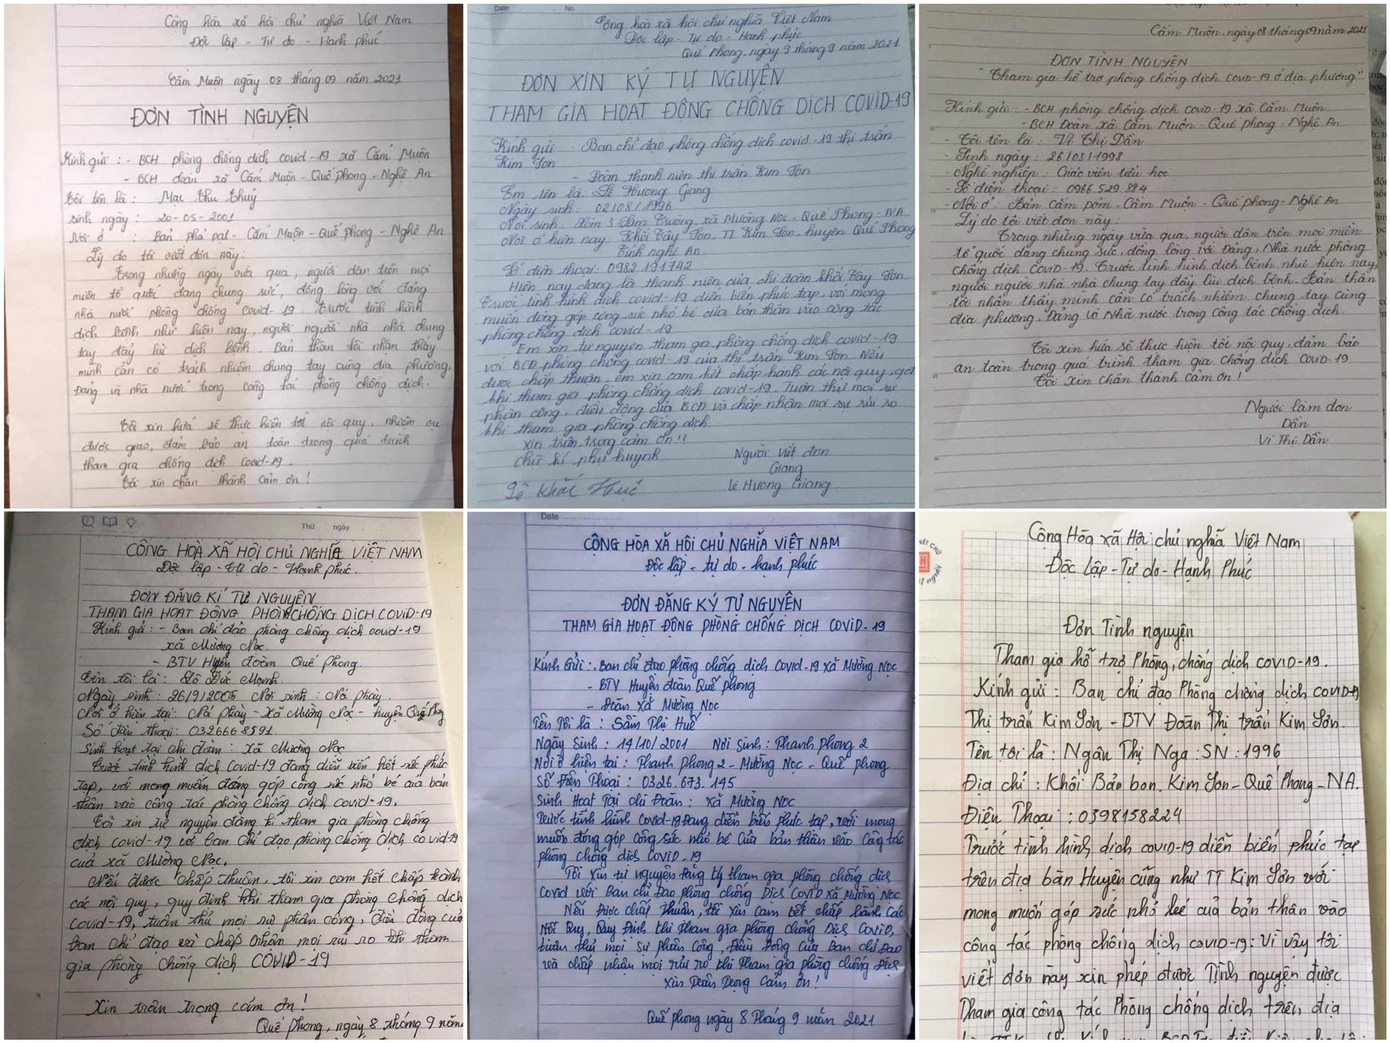 Cộng hòa xã hội chủ nghĩa Việt Nam
Độc lập - Tự do - Hạnh phúc
Cắm Muộn ngày 08 tháng 09 năm 2021
ĐƠN TÌNH NGUYỆN
Kính gửi : - BCH phòng chống dịch covid-19 xã Cắm Muộn
- BCH đoàn xã Cắm Muộn - Quế phong - Nghệ An
Tôi tên là : Mạc Thu Thuỷ
sinh ngày : 20-05-2001
Nơi ở : Bản phả pạt - Cắm Muộn - Quế Phong - Nghệ An
Lý do tôi viết đơn này:
Trong những ngày vừa qua, người dân trên mọi
miền tổ quốc đang chung sức, đồng lòng với đảng
nhà nước phòng chống covid-19. Trước tình hình
dịch bệnh như hiện nay, người người nhà nhà chung
tay đẩy lùi dịch bệnh. Bản thân tôi nhận thấy
mình cần có trách nhiệm chung tay cùng địa phương,
Đảng và nhà nước trong công tác phòng chống dịch.
Tôi xin hứa sẽ thực hiện tốt nội quy, nhiệm vụ
được giao, đảm bảo an toàn trong quá trình
tham gia chống dịch Covid-19.
Tôi xin chân thành cảm ơn !
Date No.
Cộng hòa xã hội chủ nghĩa Việt Nam
Độc lập - Tự do - Hạnh phúc
Quế Phong, ngày 9 tháng 9 năm 2021
ĐƠN XIN KÝ TỰ NGUYỆN
THAM GIA HOẠT ĐỘNG CHỐNG DỊCH COVID-19
Kính gửi : - Ban chỉ đạo phòng chống dịch covid-19 thị trấn
Kim Sơn
- Đoàn thanh niên thị trấn Kim Sơn
Em tên là: Lê Hương Giang
Ngày sinh: 02/08/1996
Nơi sinh: Xóm 5 Lâm Trường, xã Mường Nọc - Quế Phong - NA
Nơi ở hiện nay: Khối Tây Sơn, TT Kim Sơn, huyện Quế Phong
Tỉnh nghệ An
Số điện thoại: 0982 191742
Hiện nay đang là thanh niên của chi đoàn khối Tây Sơn
Trước tình hình dịch covid-19 diễn biến phức tạp, với mong
muốn đóng góp công sức nhỏ bé của bản thân vào công tác
phòng chống dịch covid-19.
Em xin tự nguyện tham gia phòng chống dịch covid-19
với BCĐ phòng chống covid-19 của thị trấn Kim Sơn. Nếu
được chấp thuận, em xin cam kết chấp hành các nội quy, qđ
khi tham gia phòng chống dịch covid-19. Tuân thủ mọi sự
phân công, điều động của BCĐ và chấp nhận mọi sự rủi ro
khi tham gia phòng chống dịch.
Xin trân trọng cảm ơn !!
Chữ kí phụ huynh Người viết đơn
Giang
Lê Khắc Lê Hương Giang
Cắm Muộn, ngày 08 tháng 09 năm 2021
ĐƠN TÌNH NGUYỆN
"Tham gia hỗ trợ phòng chống dịch covid-19 ở địa phương"
Kính gửi : - BCH phòng chống dịch covid-19 xã Cắm Muộn
- BCH Đoàn xã Cắm Muộn - Quế phong - Nghệ An
- Tôi tên là : Vi Thị Dần
- Sinh ngày : 26/03/1998
- Nghề nghiệp : Giáo viên tiểu học
- Số điện thoại : 0966 529 884
- Nơi ở : Bản Cắm pỏm - Cắm Muộn - Quế phong - Nghệ An
Lý do tôi viết đơn này :
Trong những ngày vừa qua, người dân trên mọi miền
tổ quốc đang chung sức, đồng lòng với Đảng, Nhà nước phòng
chống dịch covid-19. Trước tình hình dịch bệnh như hiện nay,
người người nhà nhà chung tay đẩy lùi dịch bệnh. Bản thân
tôi nhận thấy mình cần có trách nhiệm chung tay cùng
địa phương. Đảng và Nhà nước trong công tác chống dịch.
Tôi xin hứa sẽ thực hiện tốt nội quy, đảm bảo
an toàn trong quá trình tham gia chống dịch Covid-19
Tôi xin chân thành cảm ơn !
Người làm đơn
Dần
Vi Thị Dần
Thứ ngày
CỘNG HOÀ XÃ HỘI CHỦ NGHĨA VIỆT NAM
Độc lập - Tự do - Hạnh phúc.
ĐƠN ĐĂNG KÍ TỰ NGUYỆN
THAM GIA HOẠT ĐỘNG PHÒNG CHỐNG DỊCH COVID-19
Kính gửi : - Ban chỉ đạo phòng chống dịch covid-19
xã Mường Nọc.
- BTV Huyện đoàn Quế Phong.
Tên tôi là : Đức Mạnh
Ngày sinh : 26/9/2005 Nơi sinh : Ná Phày
Nơi ở hiện tại: Ná Phày - Xã Mường Nọc - huyện Quế Phong
Số điện thoại: 0326668591
Sinh hoạt tại chi đoàn : Xã Mường Nọc
Trước tình hình dịch Covid-19 đang diễn biến hết sức phức
tạp, với mong muốn đóng góp công sức nhỏ bé của bản
thân vào công tác phòng chống dịch covid-19.
Tôi xin tự nguyện đăng kí tham gia phòng chống
dịch covid-19 với ban chỉ đạo phòng chống dịch covid-19
của xã Mường Nọc.
Nếu được chấp thuận, tôi xin cam kết chấp hành
các nội quy, quy định khi tham gia phòng chống dịch
covid-19, tuân thủ mọi sự phân công, điều động của
ban chỉ đạo và chấp nhận mọi rủi ro khi tham
gia phòng chống dịch COVID-19
Xin trân trọng cảm ơn !
Quế phong, ngày 8 tháng 9 năm
Date
CỘNG HÒA XÃ HỘI CHỦ NGHĨA VIỆT NAM
Độc lập - tự do - hạnh phúc
ĐƠN ĐĂNG KÝ TỰ NGUYỆN
THAM GIA HOẠT ĐỘNG PHÒNG CHỐNG DỊCH COVID-19
Kính Gửi : - Ban chỉ đạo phòng chống dịch Covid-19 xã Mường Nọc
- BTV Huyện đoàn Quế phong
- Đoàn xã Mường Nọc
Tên Tôi là : Sầm Thị Huế
Ngày Sinh : 14/10/2001 Nơi Sinh : Phanh Phong 2
Nơi ở hiện tại : Phanh phong 2 - Mường Nọc - Quế phong
Số Điện Thoại : 0326.673.145
Sinh Hoạt Tại chi Đoàn : xã Mường Nọc
Trước tình hình Covid-19 đang diễn biến phức tạp, với mong
muốn đóng góp công sức nhỏ bé của bản thân vào công tác
phòng chống dịch COVID-19
Tôi xin tự nguyện đăng ký tham gia phòng chống dịch
Covid với Ban chỉ Đạo phòng chống Dịch Covid xã Mường Nọc
Nếu được chấp thuận, tôi xin cam kết chấp hành các
Nội Quy, Quy Định khi tham gia phòng chống Dịch Covid,
tuân thủ mọi sự phân công, điều động của Ban chỉ Đạo
và chấp nhận mọi rủi ro khi tham gia phòng chống dịch
Xin Trân Trọng Cảm ơn !
Quế phong ngày 8 Tháng 9 năm 2021
Cộng Hòa xã Hội chủ nghĩa Việt Nam
Độc Lập - Tự do - Hạnh Phúc
Đơn Tình nguyện
Tham gia hỗ trợ Phòng, chống dịch covid-19.
Kính gửi : Ban chỉ đạo Phòng chống dịch covid-19
Thị trấn Kim Sơn - BTV Đoàn Thị trấn Kim Sơn.
Tên tôi là : Ngân Thị Nga. SN : 1996
Địa chỉ : Khối Bản bon. Kim Sơn - Quế Phong - NA.
Điện Thoại : 0398158224
Trước tình hình dịch covid-19 diễn biến phức tạp
trên địa bàn Huyện cũng như TT Kim Sơn với
mong muốn góp sức nhỏ bé của bản thân vào
công tác phòng chống dịch covid-19: Vì vậy tôi
viết đơn này xin phép được Tình nguyện được
Tham gia công tác Phòng chống dịch trên địa